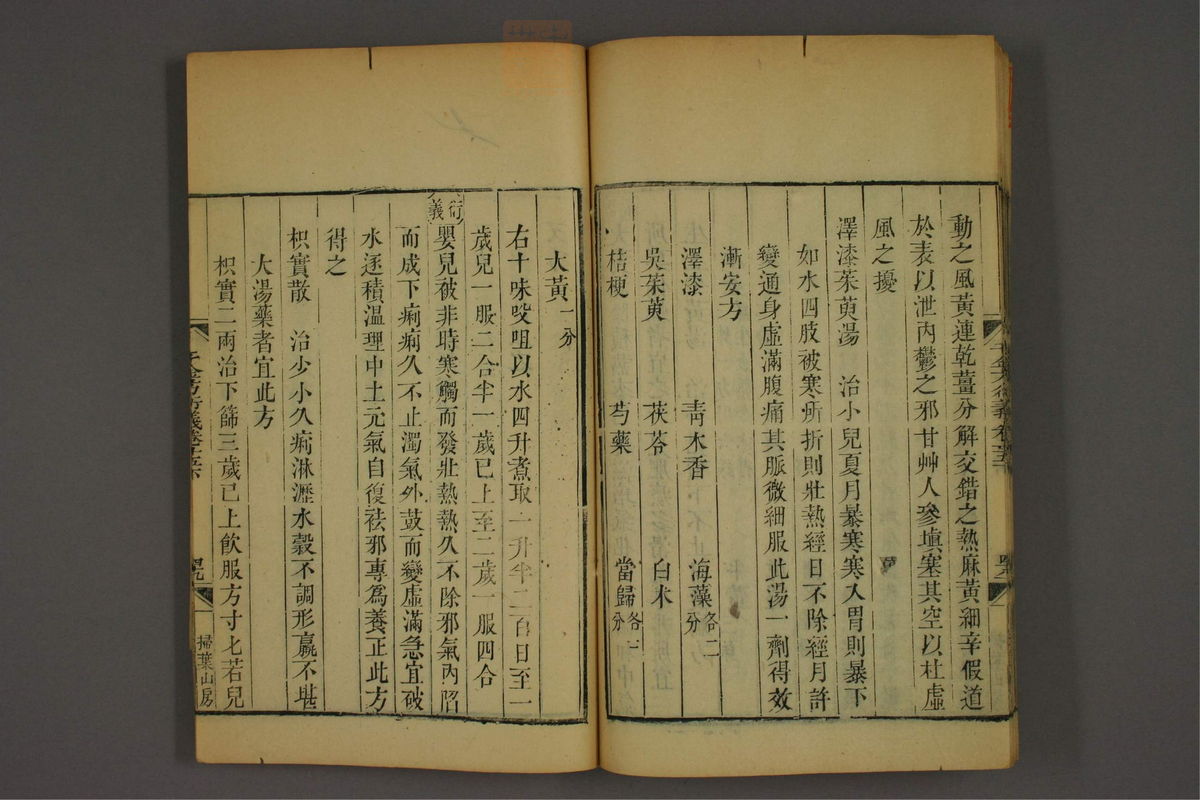 動之風黃連乾薑分解交錯之熱麻黃細辛假道
於表以泄內鬱之邪甘艸人參塡塞其空以杜虛
風之擾
澤漆茱萸湯 治小兒夏月暴寒寒入胃則暴下
如水四肢被寒所折則壯熱經日不除經月許
變通身虛滿腹痛其脈微細服此湯一劑得效
漸安方
澤漆 靑木香 海藻各二分
吳茱萸 茯苓 白朮
桔梗 芍藥 當歸各一分
大黃一分
右十味㕮咀以水四升煮取一升半二百日至一
歲兒一服二合半一歲已上至二歲一服四合
衍義
嬰兒被非時寒觸而發壯熱熱久不除邪氣內陷
而成下痢痢久不止濁氣外鼓而變虛滿急宜破
水逐積溫理中土元氣自復祛邪專爲養正此方
得之
枳實散 治少小久痢淋瀝水穀不調形羸不堪
大湯藥者宜此方
枳實二兩治下篩三歲已上飲服方寸匕若兒
千金方衍義卷十五下
掃葉山房